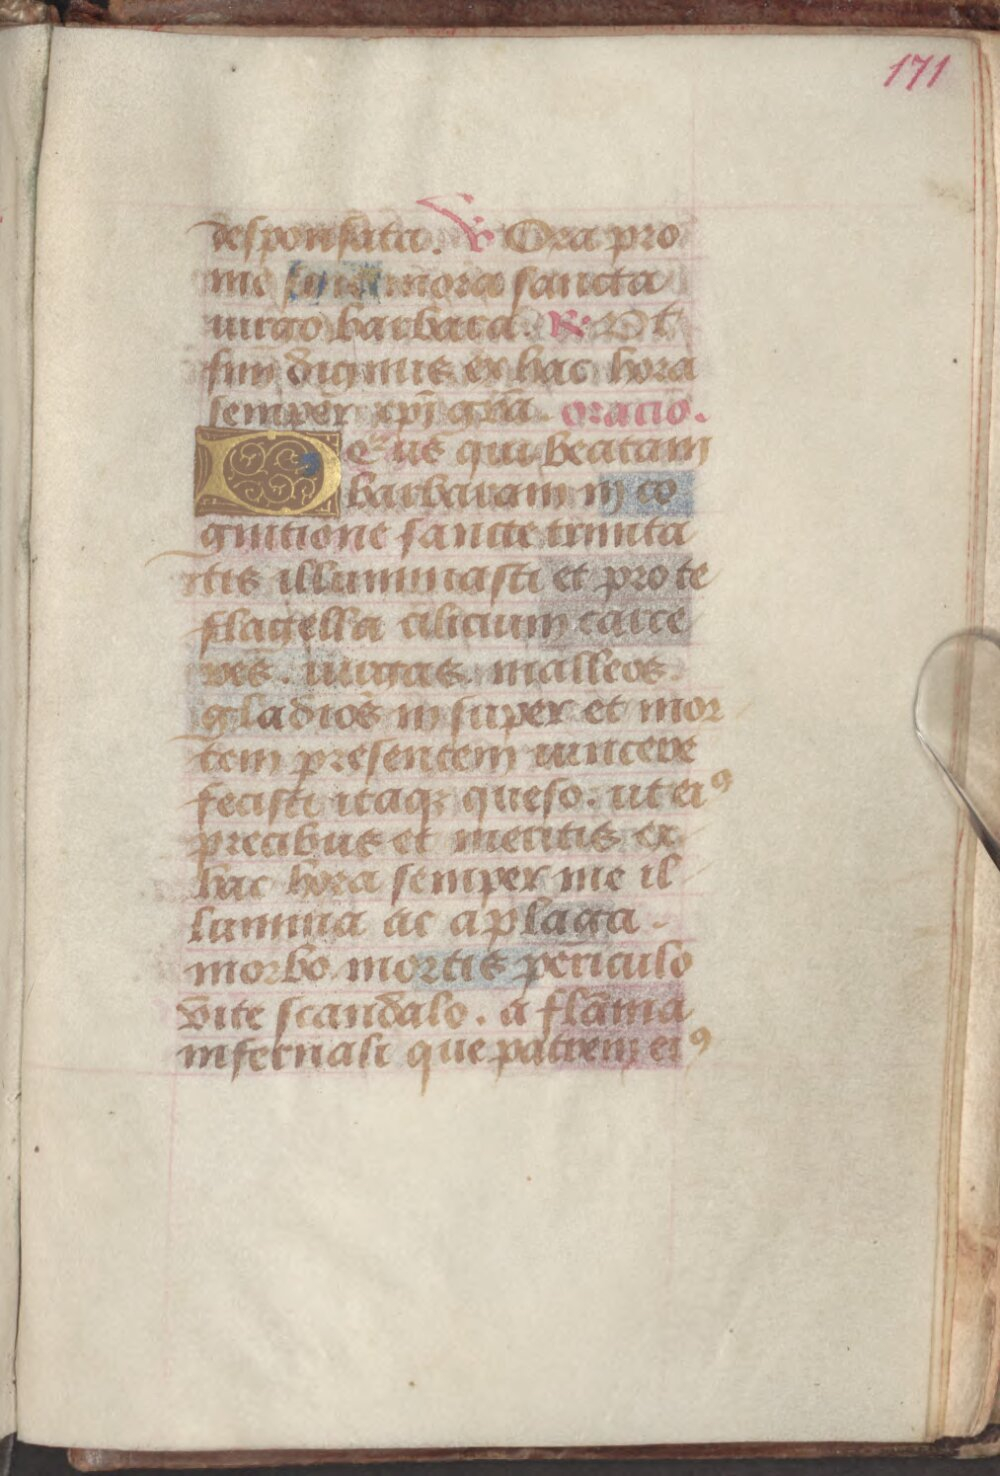 171
desponsata. ℣ Ora pro
me sine mora sancta
uirgo barbara. ℟ Ut
sim dignus ex hac hora
semper xp̄i gr̄a. oracio.
Deus qui beatam
barbaram in co
gnitione sancte trinita
tis illuminasti et pro te
flagella cilicium carce
res. uirgas. malleos.
gladios insuper et mor
tem presentem uincere
fecisti itaqꝫ queso. ut eiꝰ
precibus et meritis ex
hac hora semper me il
lumina ac a plaga.
morbo mortis periculo
vite scandalo. a flāma
infernali que patrem eiꝰ